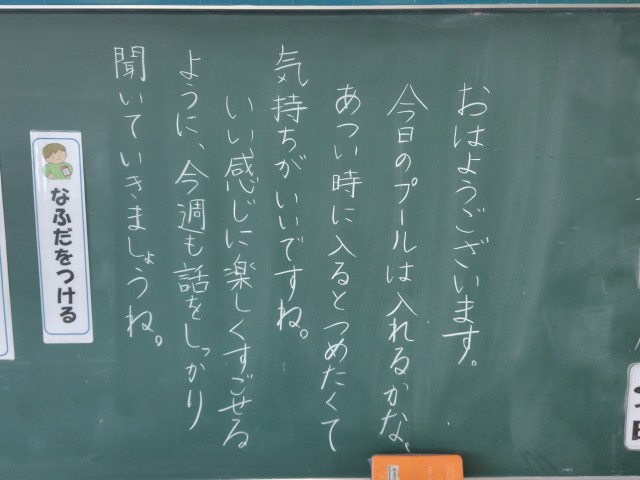 おはようございます。
今日のプールは入れるかな。
あつい時に入るとつめたくて
気持ちがいいですね。
いい感じに楽しくすごせる
ように、今週も話をしっかり
聞いていきましょうね。
なふだをつける